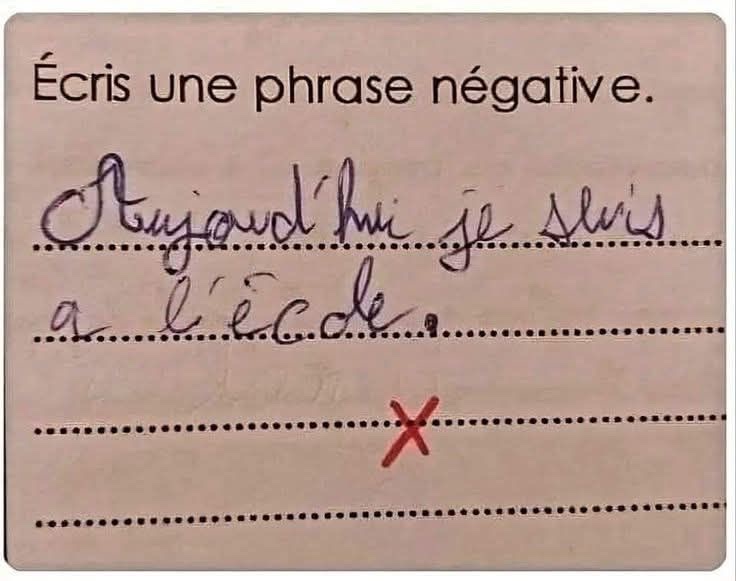 Écris une phrase négative.
Aujoud'hui je suis
a l'école.